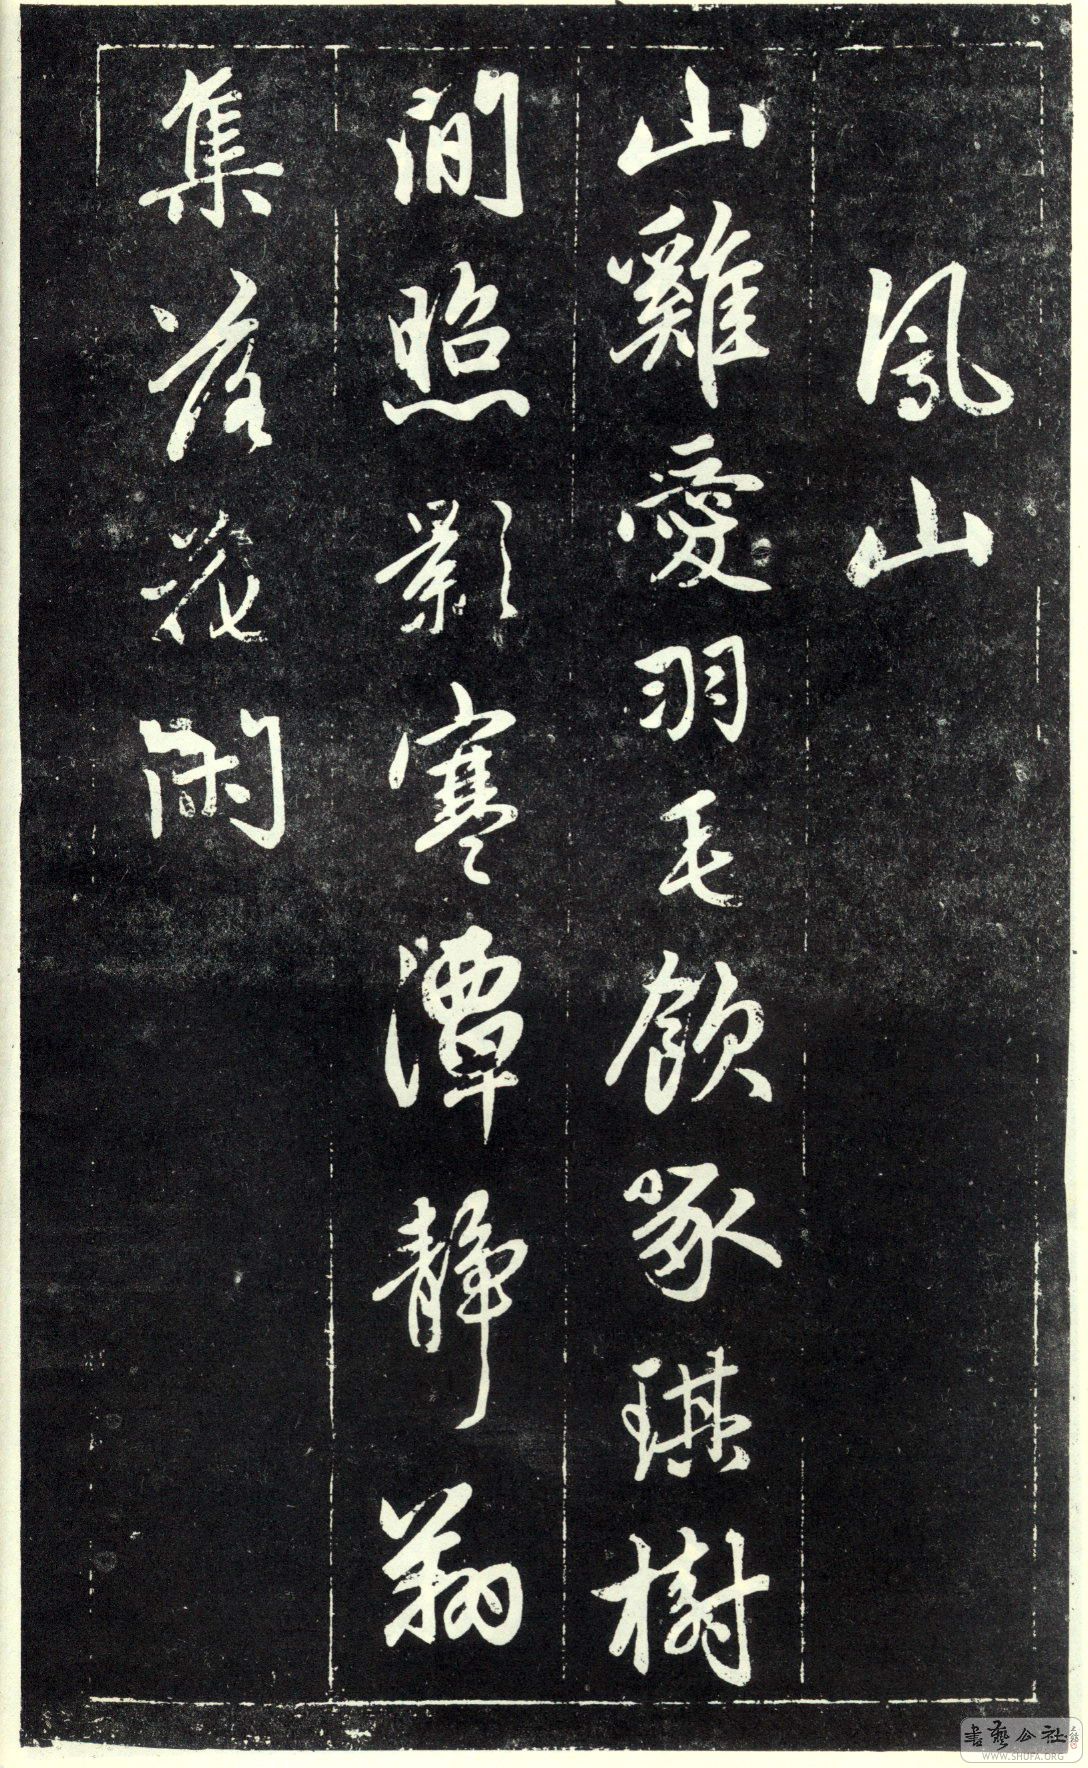 鳳山
山雞愛羽毛飲啄琪樹
間照影寒潭靜翔
集落花閑
書藝公社
WWW.SHUFA.ORG